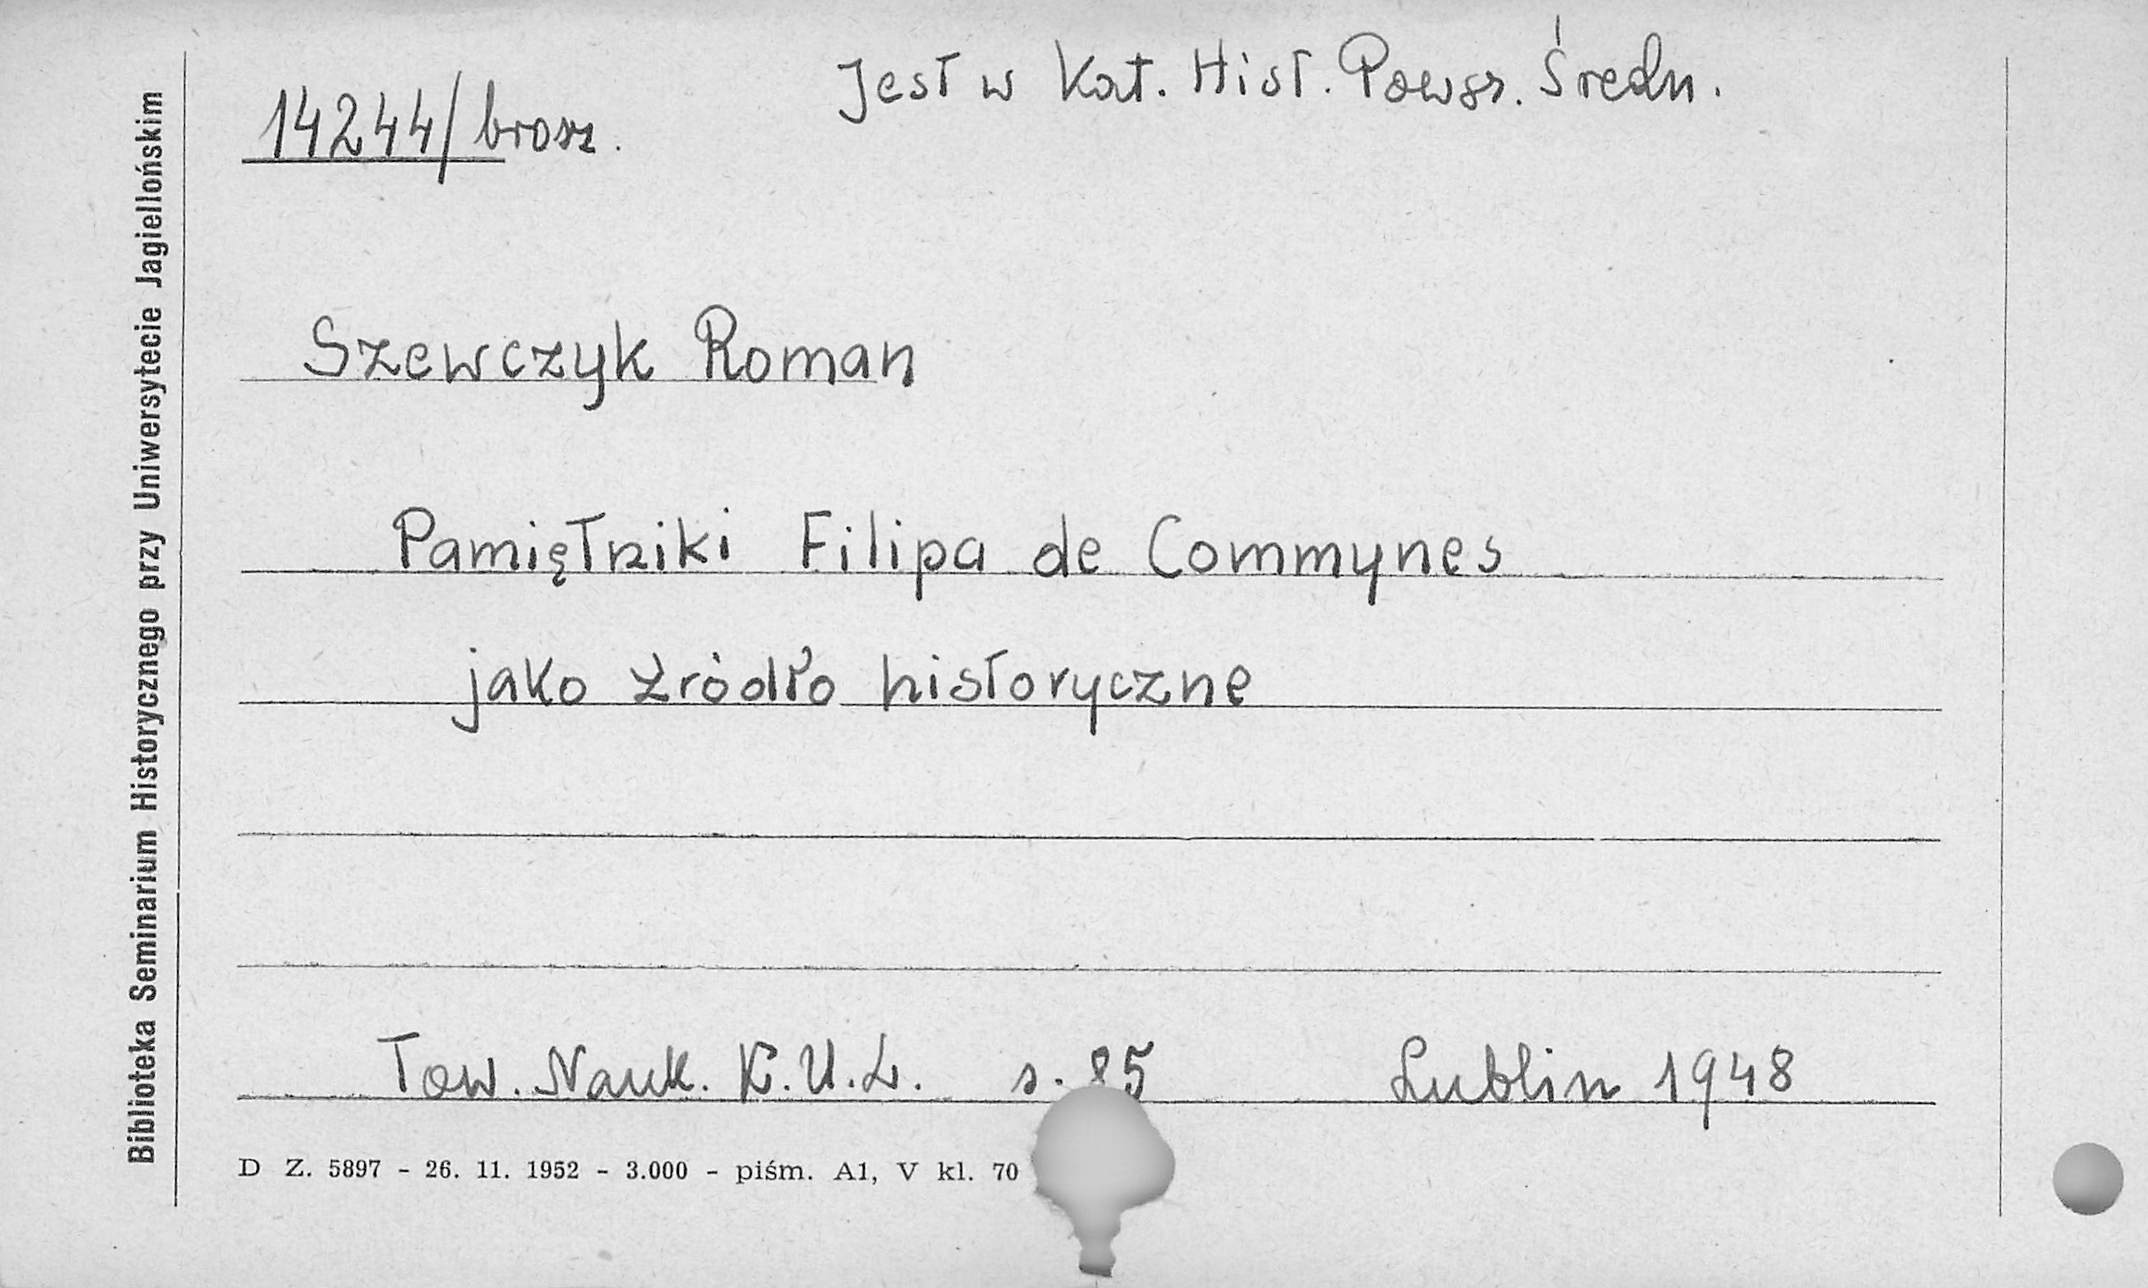 Jest w Kat. Hist. Powsz. Średn.
14244/brosz.
Szewczyk Roman
Pamiętniki Filipa de Commynes
jako źródło historyczne
Tow. Nauk. K.U.L. s. 85 Lublin 1948
D Z. 5897 - 26. 11. 1952 - 3.000 - piśm. A1, V kl. 70
Biblioteka Seminarium Historycznego przy Uniwersytecie Jagiellońskim